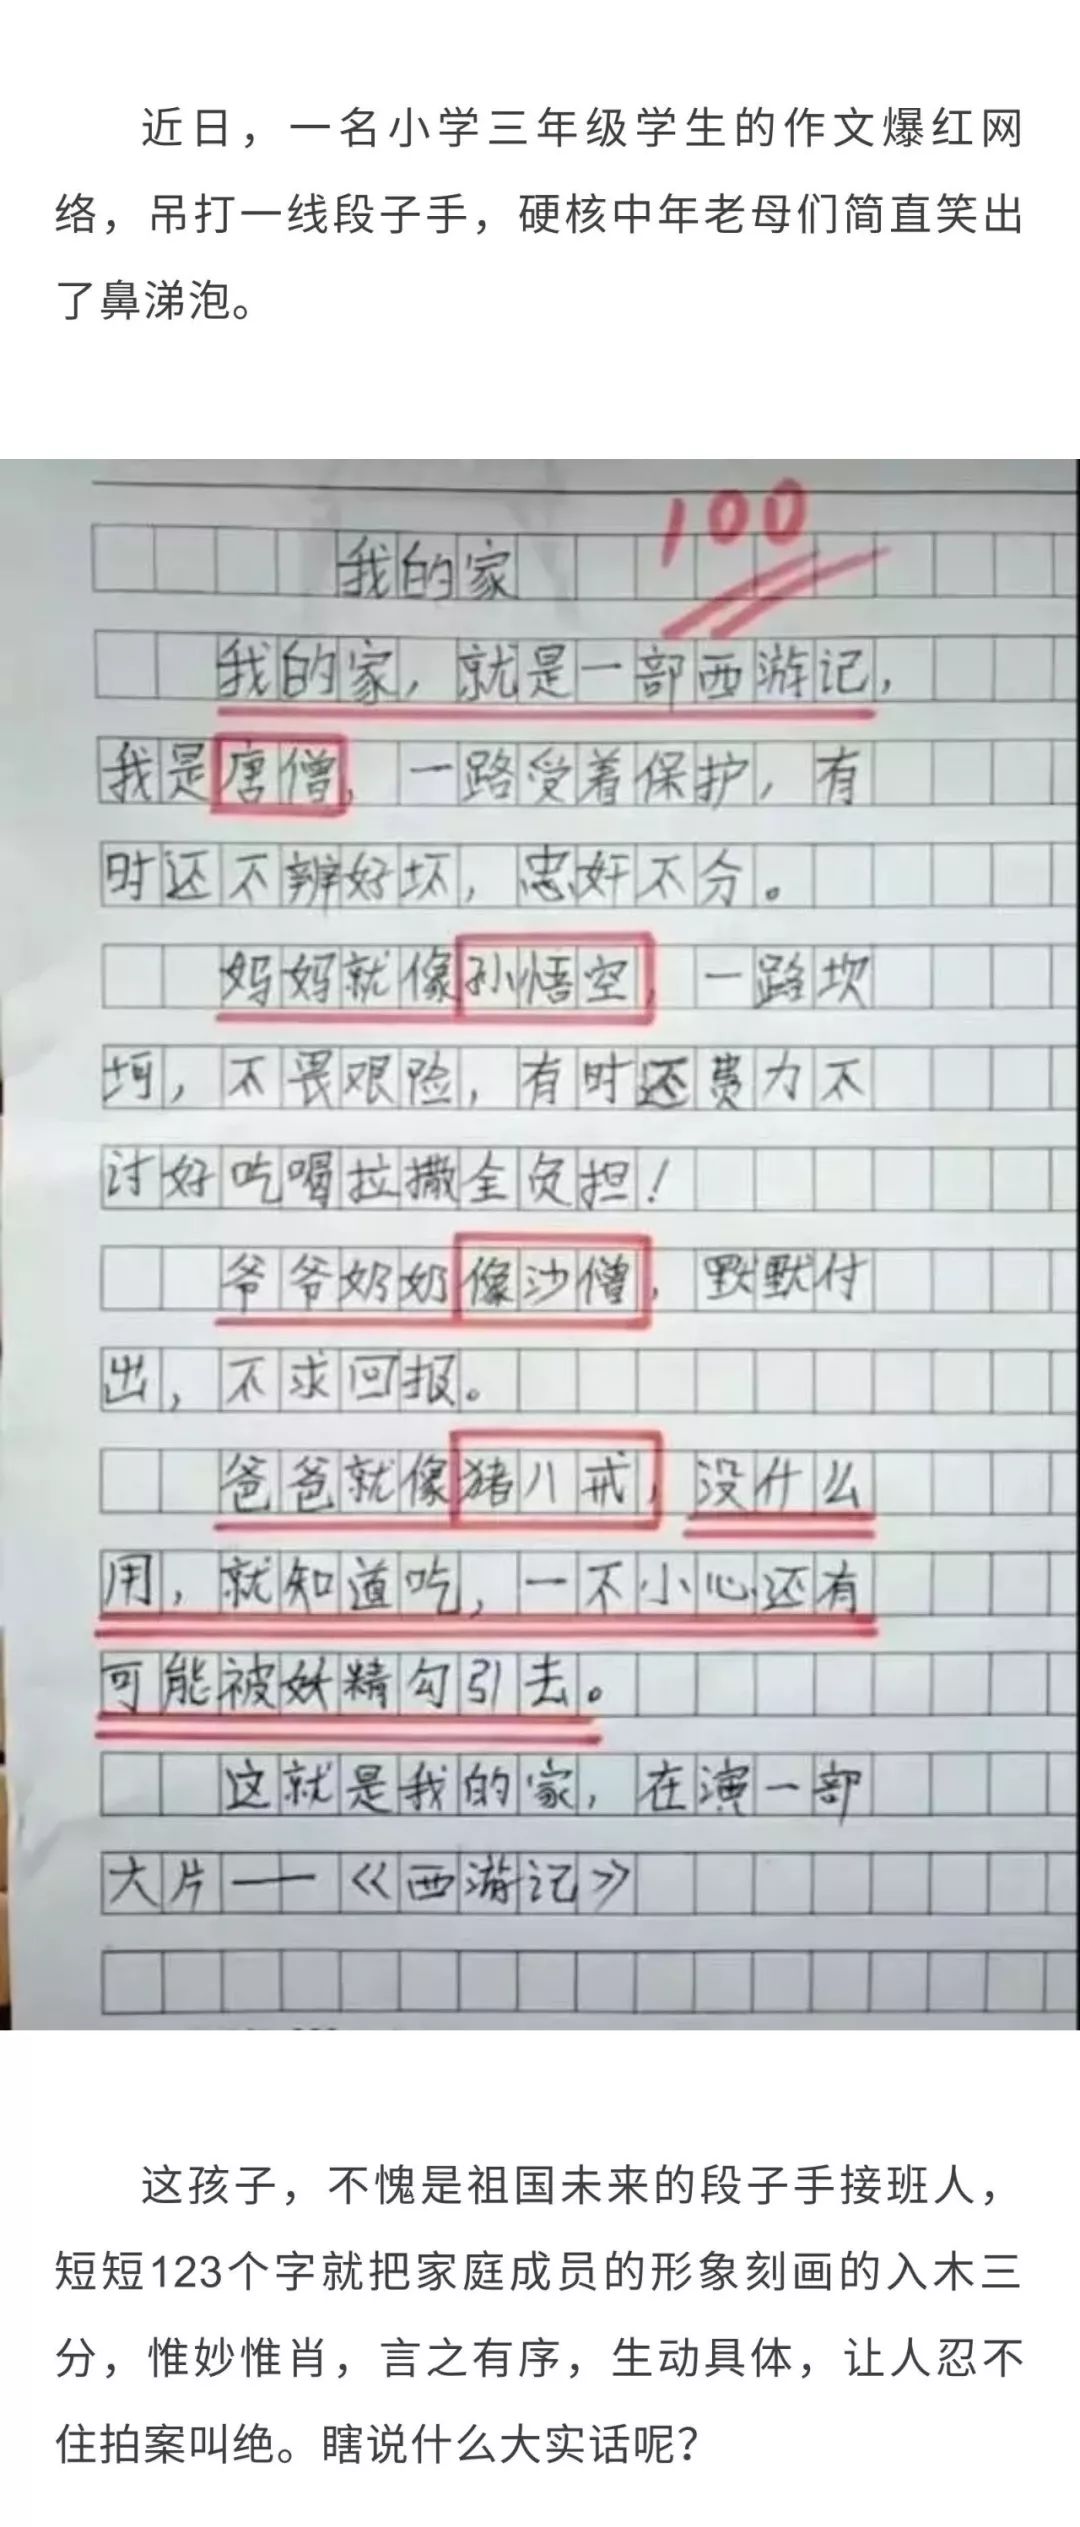 近日，一名小学三年级学生的作文爆红网
络，吊打一线段子手，硬核中年老母们简直笑出
了鼻涕泡。
100
我的家
我的家，就是一部西游记，
我是唐僧，一路受着保护，有
时还不辨好坏，忠奸不分。
妈妈就像孙悟空，一路坎
坷，不畏艰险，有时还费力不
讨好吃喝拉撒全负担！
爷爷奶奶像沙僧，默默付
出，不求回报。
爸爸就像猪八戒，没什么
用，就知道吃，一不小心还有
可能被妖精勾引去。
这就是我的家，在演一部
大片——《西游记》
这孩子，不愧是祖国未来的段子手接班人，
短短123个字就把家庭成员的形象刻画的入木三
分，惟妙惟肖，言之有序，生动具体，让人忍不
住拍案叫绝。瞎说什么大实话呢？